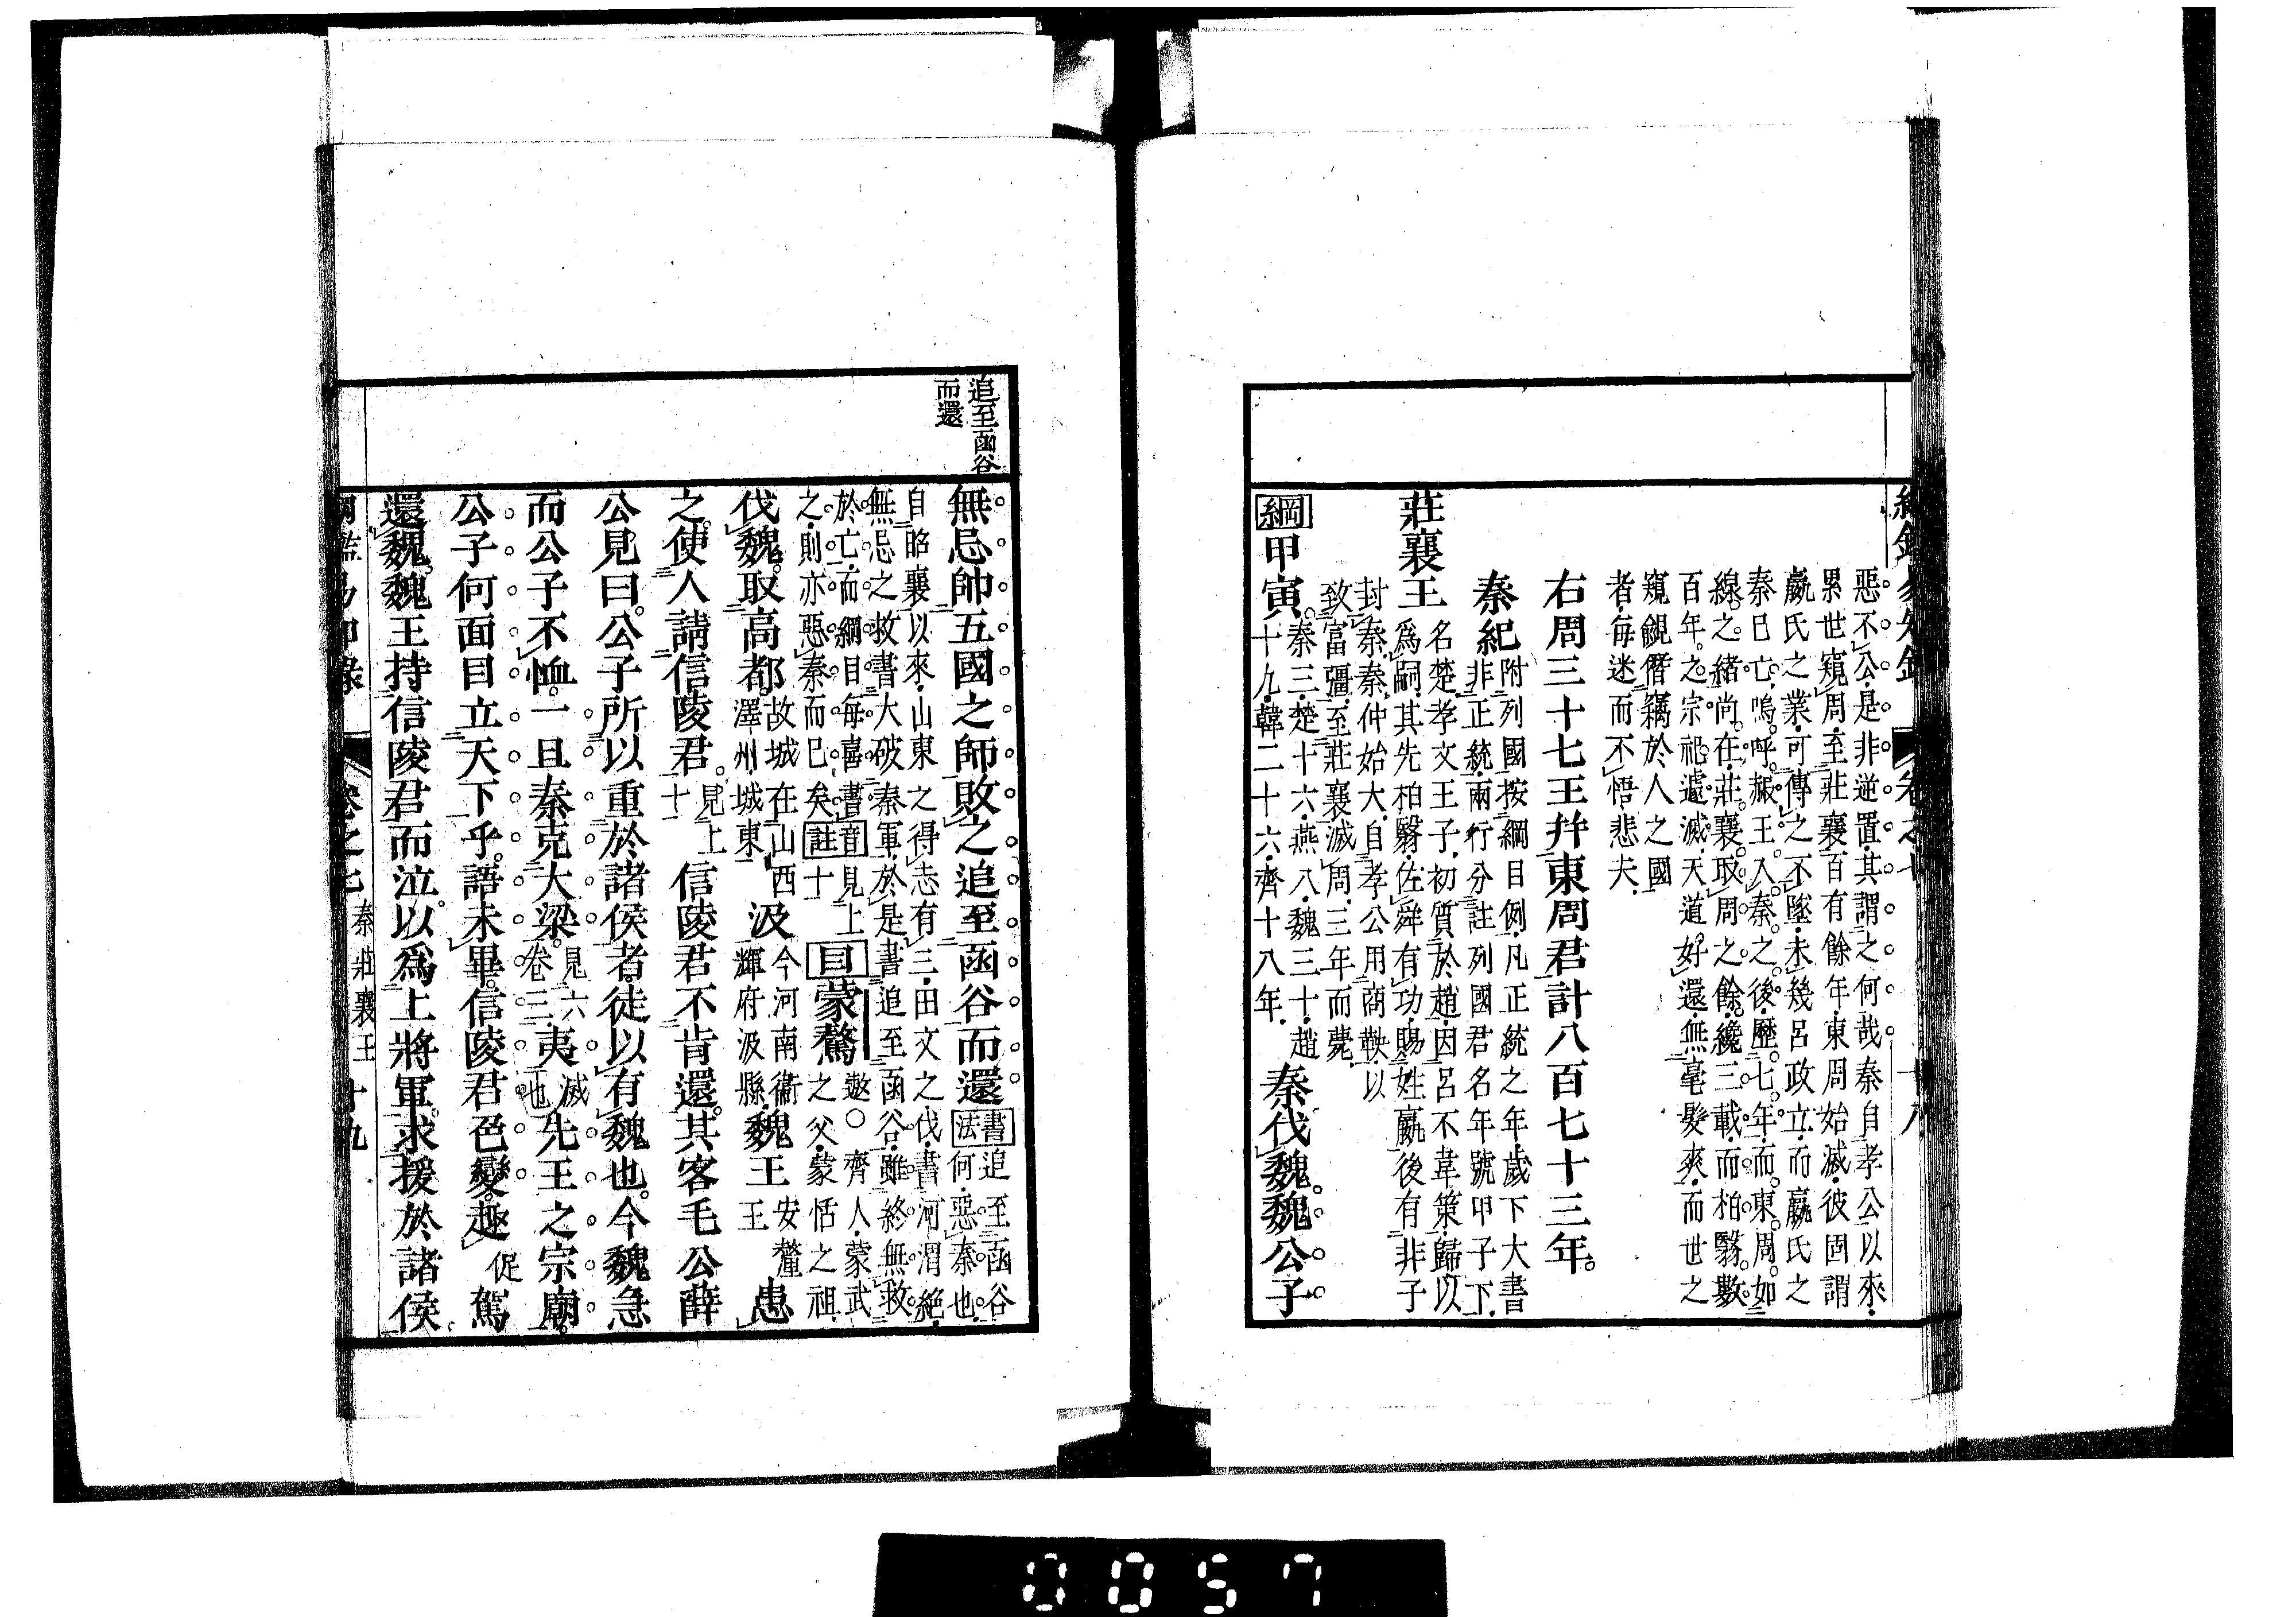 惡不公是非逆置其謂之何哉秦自孝公以來
累世窺周至莊襄百有餘年東周始滅彼固謂
嬴氏之業可傳之不墜未幾呂政立而嬴氏之
秦已亡嗚呼赧王入秦之後歷七年而東周如
線之緒尚在莊襄取周之餘纔三載而柏翳數
百年之宗祀遽滅天道好還無毫髮爽而世之
窺覦僭竊於人之國
者每迷而不悟悲夫
右周三十七王幷東周君計八百七十三年
秦紀
附列國按綱目例凡正統之年歲下大書
非正統兩行分註列國君名年號甲子下
莊襄王
名楚孝文王子初質於趙因呂不韋策歸以
爲嗣其先柏翳佐舜有功賜姓嬴後有非子
封秦秦仲始大自孝公用商鞅以
致富彊至莊襄滅周三年而薨
綱甲寅
秦三楚十六燕八魏三十趙
十九韓二十六齊十八年
秦伐魏魏公子
卷之七
十八
追至函谷
而還
無忌帥五國之師敗之追至函谷而還
書法
追至函谷
何惡秦也
自昭襄以來山東之得志有三田文之伐書河渭絕
無忌之救書大破秦軍於是書追至函谷雖終無救
於亡而綱目每喜書
之則亦惡秦而已矣
音註
見上
十
目蒙驁
遨○齊人蒙武
之父蒙恬之祖
伐魏取高都
故城在山西
澤州城東
汲
今河南衞
輝府汲縣
魏王
安釐
王
患
之使人請信陵君
見上
十一
信陵君不肯還其客毛公薛
公見曰公子所以重於諸侯者徒以有魏也今魏急
而公子不恤一旦秦克大梁
見六
卷三
夷
滅
也
先王之宗廟
公子何面目立天下乎語未畢信陵君色變趣
促
駕
還魏魏王持信陵君而泣以爲上將軍求援於諸侯
卷之七
秦莊襄王
十九
0057